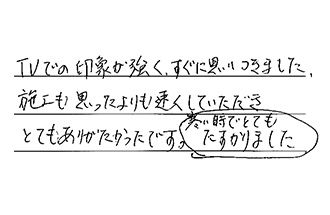 TVでの印象が強く、すぐに思いつきました、
施工も思ったよりも速くしていただき
とてもありがたかったです。
寒い時でとても
たすかりました